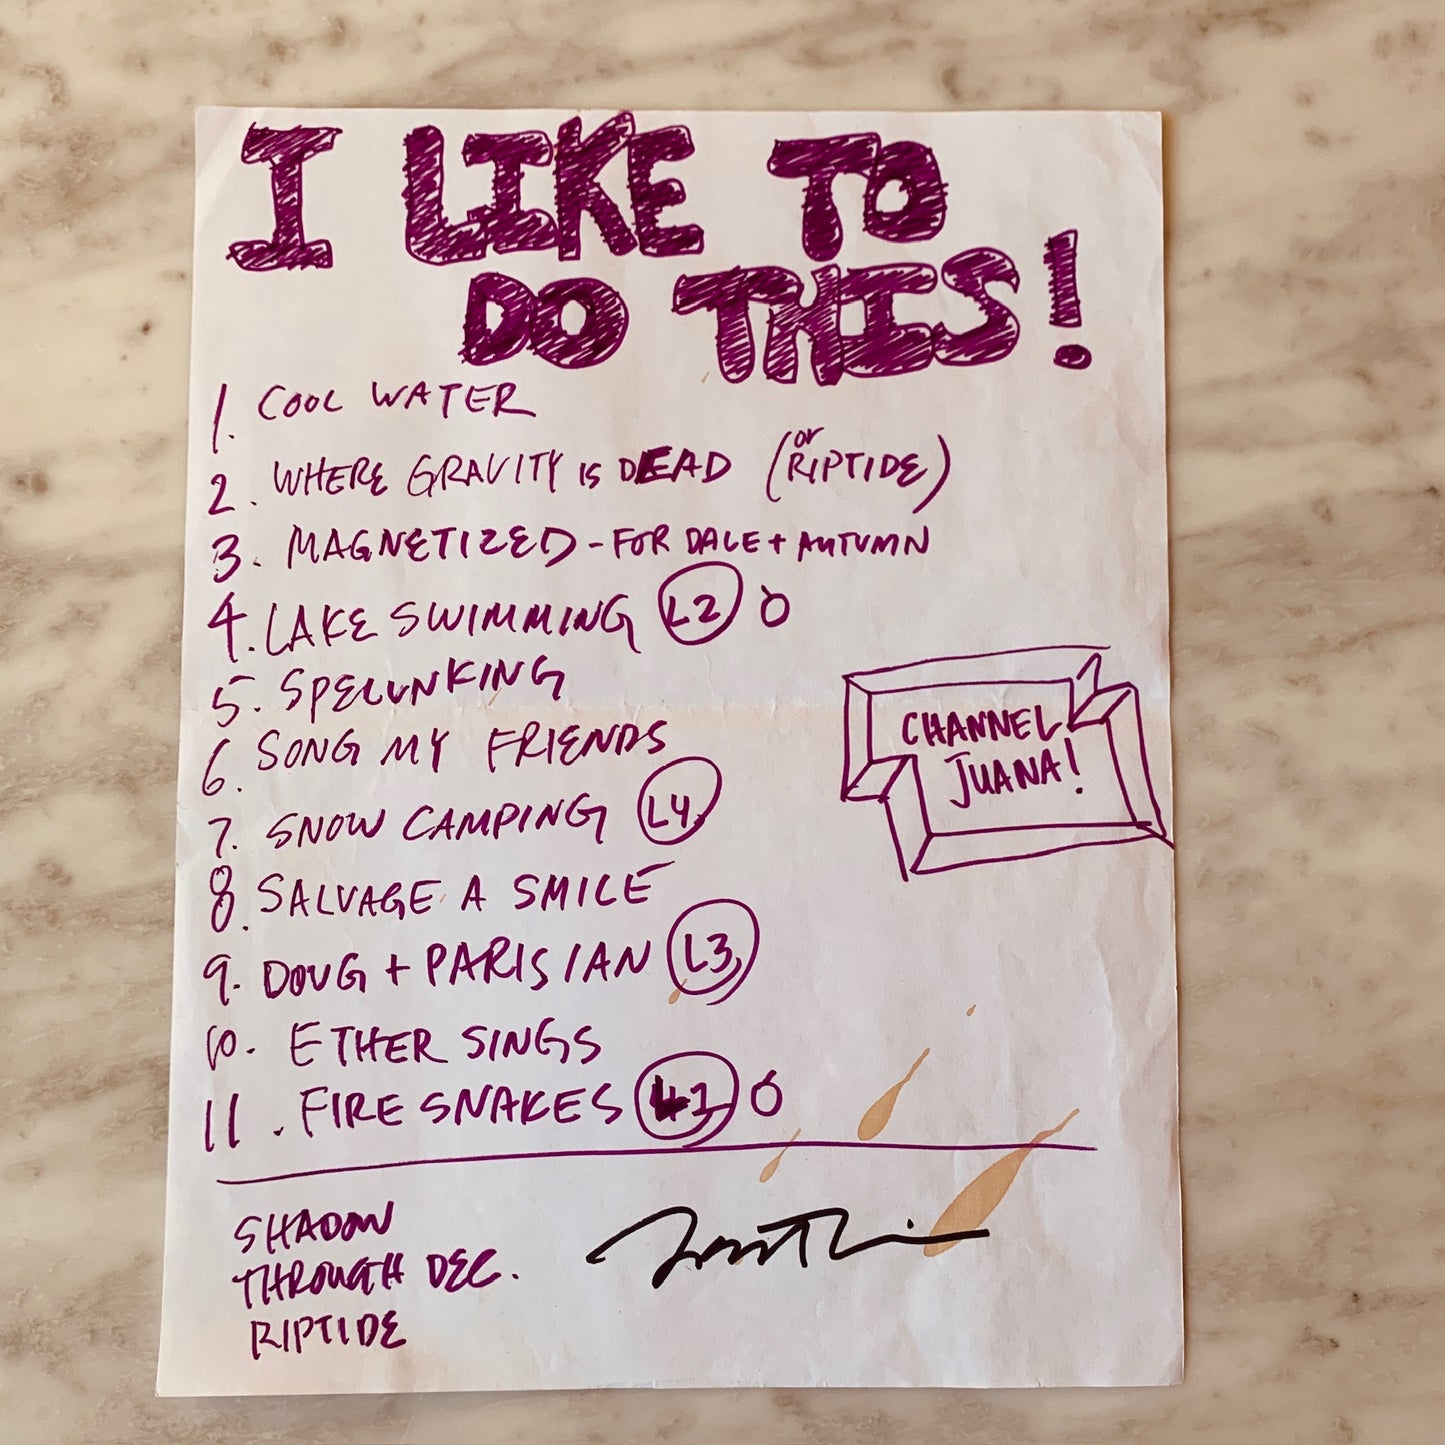 I LIKE TO
DO THIS!
1. COOL WATER
2. WHERE GRAVITY IS DEAD (or RIPTIDE)
3. MAGNETIZED - FOR DALE + AUTUMN
4. LAKE SWIMMING L2 O
5. SPELUNKING
6. SONG MY FRIENDS
7. SNOW CAMPING L4
8. SALVAGE A SMILE
9. DOUG + PARISIAN L3
10. ETHER SINGS
11. FIRE SNAKES L1 O
CHANNEL
JUANA!
SHADOW
THROUGH DEC.
RIPTIDE